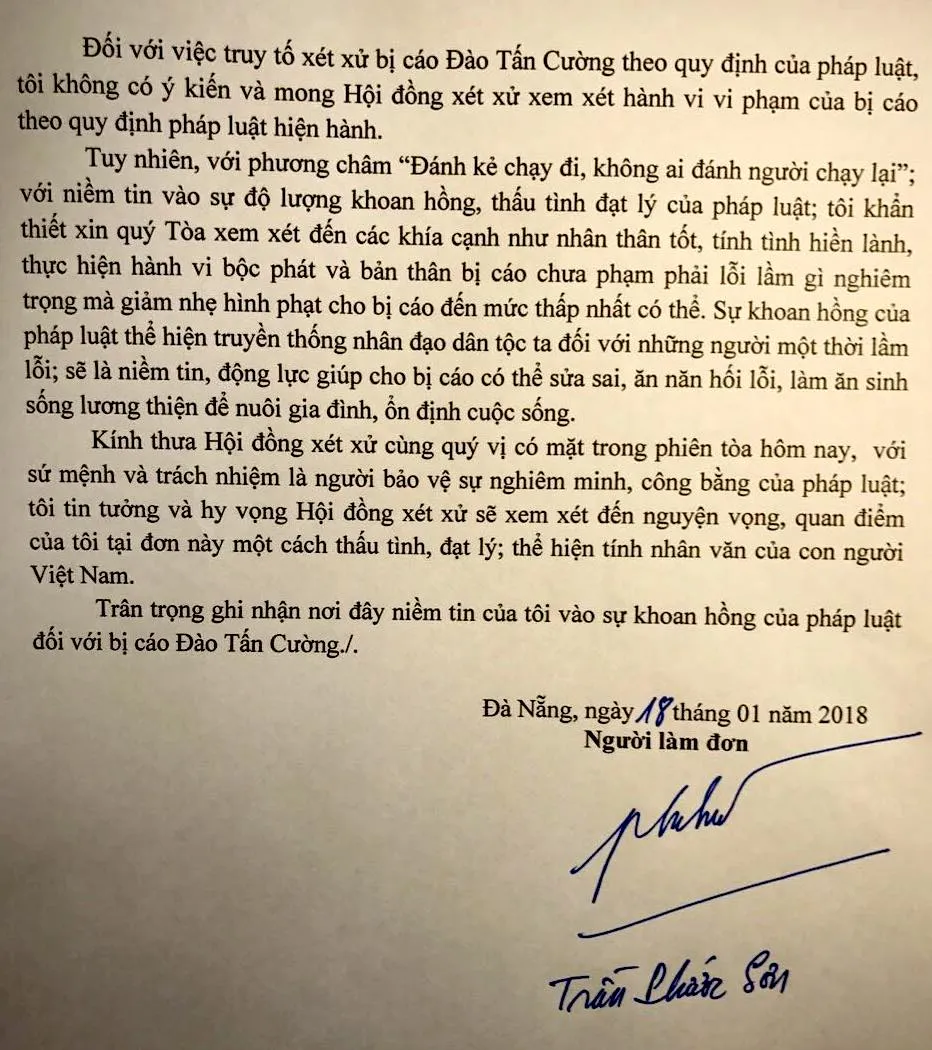 Đối với việc truy tố xét xử bị cáo Đào Tấn Cường theo quy định của pháp luật,
tôi không có ý kiến và mong Hội đồng xét xử xem xét hành vi vi phạm của bị cáo
theo quy định pháp luật hiện hành.
Tuy nhiên, với phương châm “Đánh kẻ chạy đi, không ai đánh người chạy lại”;
với niềm tin vào sự độ lượng khoan hồng, thấu tình đạt lý của pháp luật; tôi khẩn
thiết xin quý Tòa xem xét đến các khía cạnh như nhân thân tốt, tính tình hiền lành,
thực hiện hành vi bộc phát và bản thân bị cáo chưa phạm phải lỗi lầm gì nghiêm
trọng mà giảm nhẹ hình phạt cho bị cáo đến mức thấp nhất có thể. Sự khoan hồng của
pháp luật thể hiện truyền thống nhân đạo dân tộc ta đối với những người một thời lầm
lỗi; sẽ là niềm tin, động lực giúp cho bị cáo có thể sửa sai, ăn năn hối lỗi, làm ăn sinh
sống lương thiện để nuôi gia đình, ổn định cuộc sống.
Kính thưa Hội đồng xét xử cùng quý vị có mặt trong phiên tòa hôm nay, với
sứ mệnh và trách nhiệm là người bảo vệ sự nghiêm minh, công bằng của pháp luật;
tôi tin tưởng và hy vọng Hội đồng xét xử sẽ xem xét đến nguyện vọng, quan điểm
của tôi tại đơn này một cách thấu tình, đạt lý; thể hiện tính nhân văn của con người
Việt Nam.
Trân trọng ghi nhận nơi đây niềm tin của tôi vào sự khoan hồng của pháp luật
đối với bị cáo Đào Tấn Cường./.
Đà Nẵng, ngày 18 tháng 01 năm 2018
Người làm đơn
Trần Phước Sơn